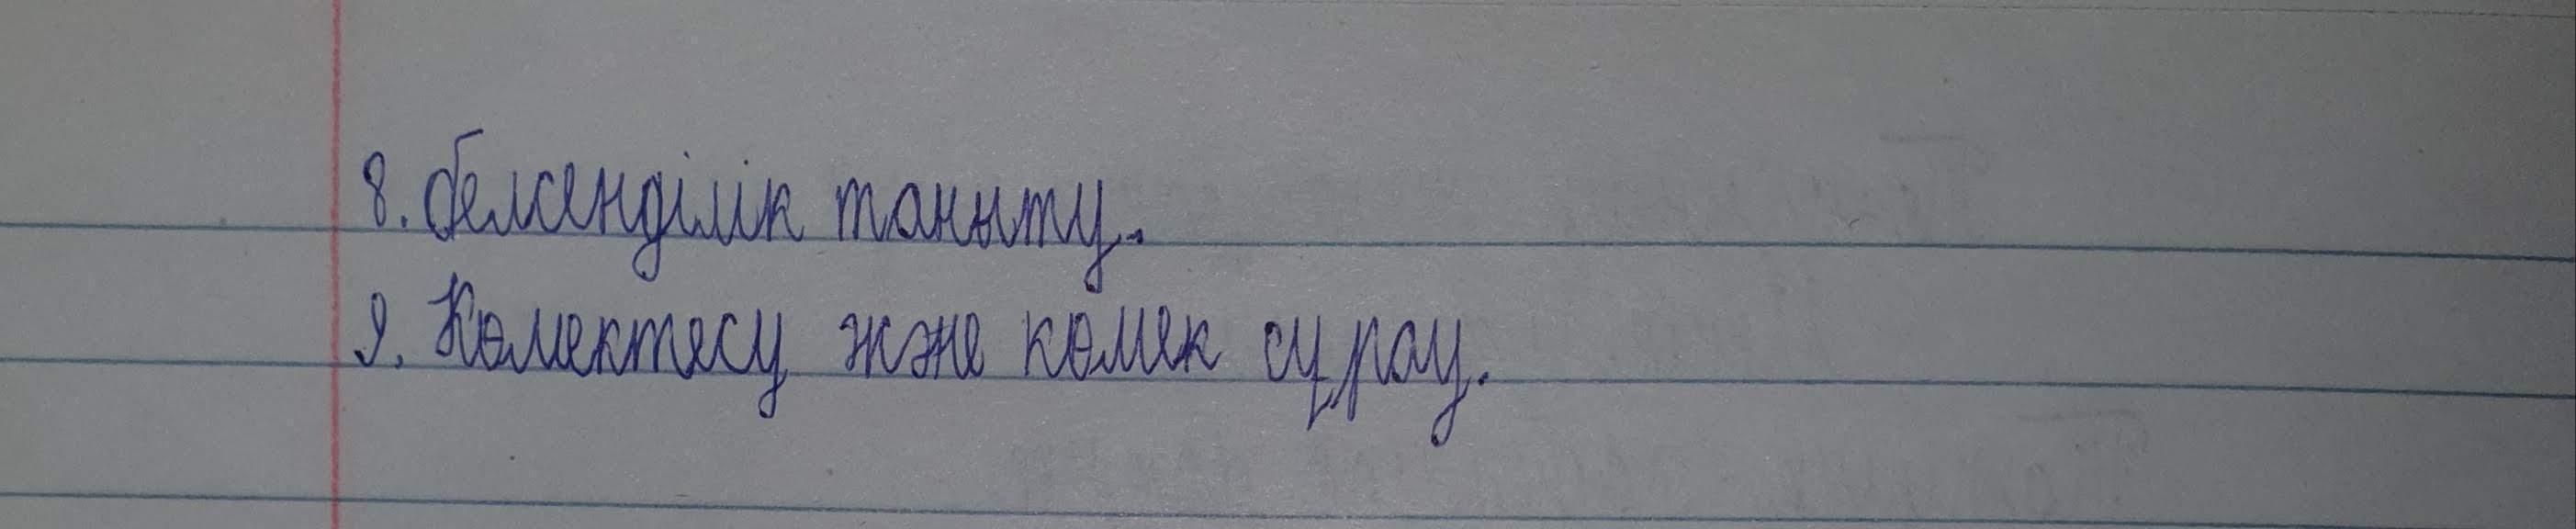 8. белсенділік таныту.
9. Көмектесу және көмек сұрау.